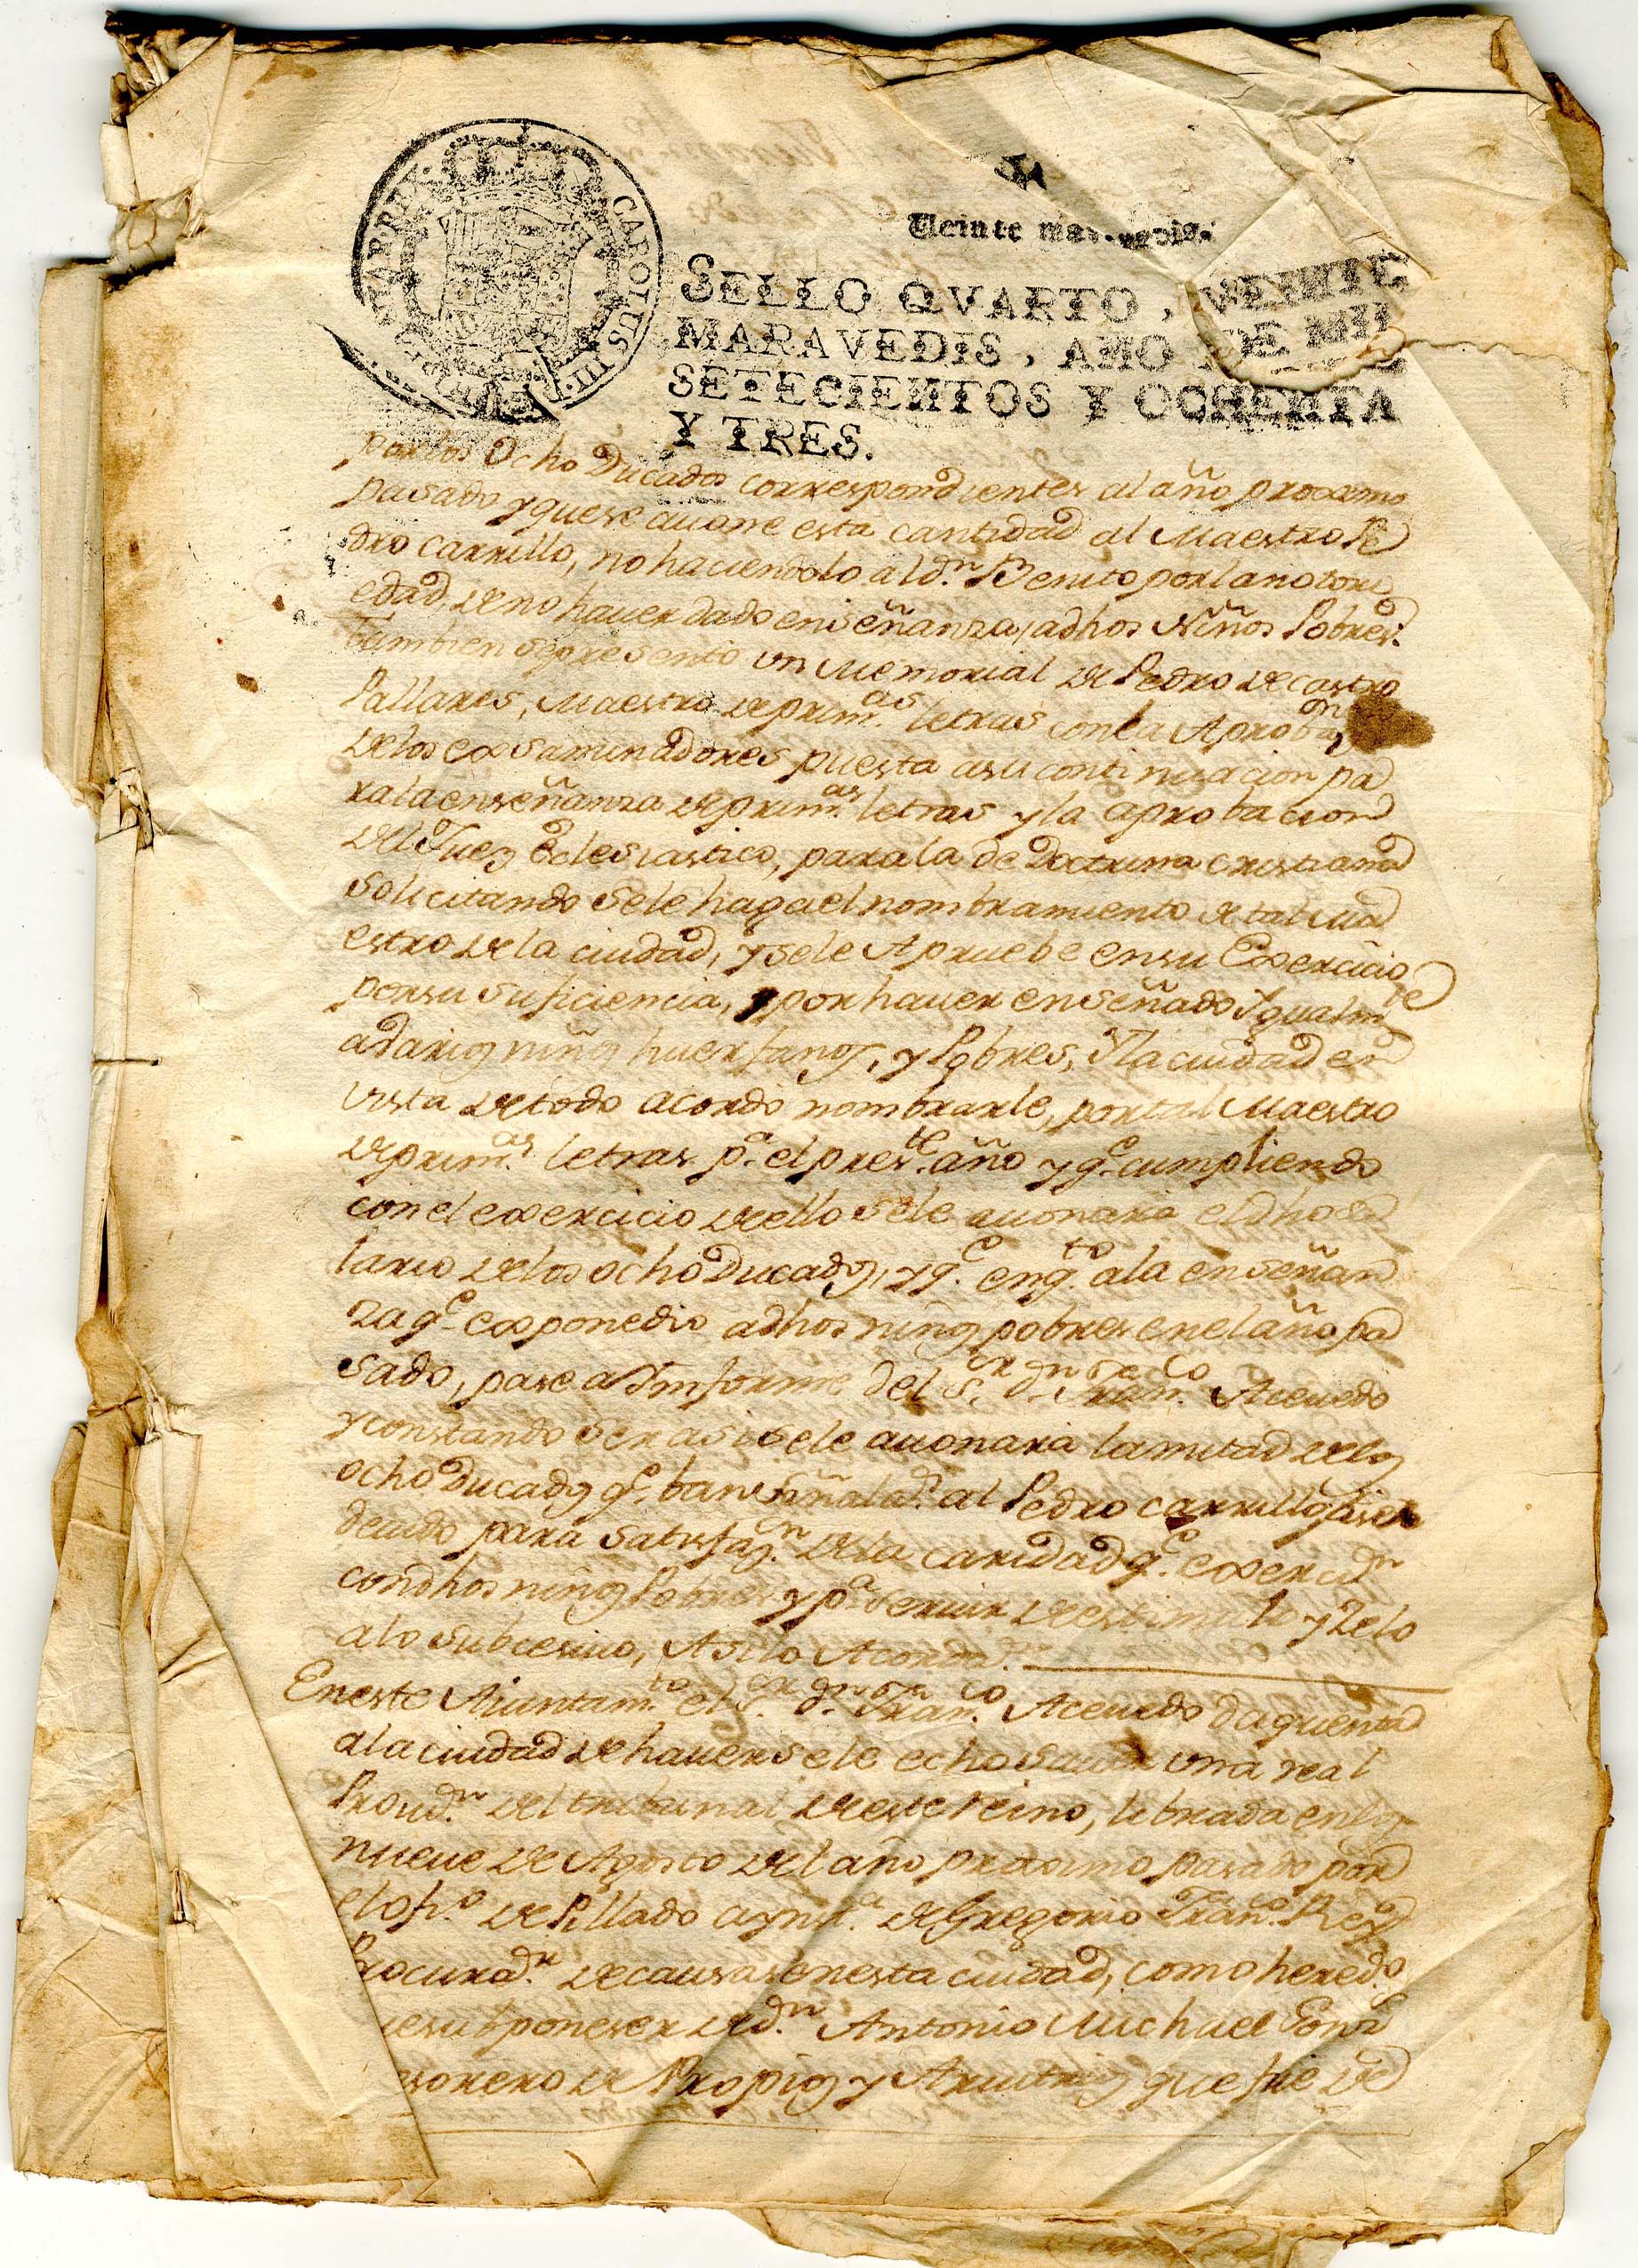 CAROLUS III
Veinte maravedis.
SELLO QVARTO, VEINTE
MARAVEDIS, AÑO DE MIL
SETECIENTOS Y OCHENTA
Y TRES.
por los ocho Ducados correspondientes al año proximo
pasado y que se auone esta cantidad al Maestro Pe
dro Carrillo, no haciendolo al dn. Benito por la notori
edad, de no hauer dado enseñanza, a dhos Niños Pobres.
tambien se presento un Memorial de Pedro de castro
Pallares, Maestro de prim.as letras con la Aproba.on
de los exsaminadores puesta a su continuacion pa
ra la enseñanza de prim.as letras y la aprobacion
del Juez Eclesiastico, para la de Doctrina cristiana
solicitando se le haga el nombramiento de tal Ma
estro de la ciudad, y se le Apruebe en su Exercicio
por su suficiencia, y por hauer enseñado Igualm.te
a barios niños huerfanos, y Pobres, Y la ciudad en
vista de todo acordo nombrarle, por tal Maestro
de prim.as letras p.a el pres.te año y q.e cumpliendo
con el exercicio de ello se le auonara el dho sa
lario de los ocho Ducados, y q.e en q.to a la enseñan
za q.e exponedio a dhos niños pobres en el año pa
sado, pase a Imforme del S.or d.n Fran.co Aceuedo
y constando ser asi se le auonara la mitad de los
ocho Ducados q.e ban señalad.s al Pedro carrillo
deuido para satisfaz.n de la caridad q.e exercie.n
con dhos niños Pobres y p.a seruir de estimulo y Zelo
a lo subcesiuo, Asi lo Acord.n
En este Aiuntam.to el S.or d.n Fran.co Aceuedo da quenta
a la ciudad de hauersele echo sauer una real
Prou.n del tribunal de este reino, librada en los
nueue de Agosto del año proximo pasado por
el ofi.o de Pillado a ynst.a de Gregorio Fran.co Rey
Procurad.r de causas en esta ciudad, como hered.o
que supone ser de d.n Antonio Michael
sorero de Propios y Aruitrios que fue de